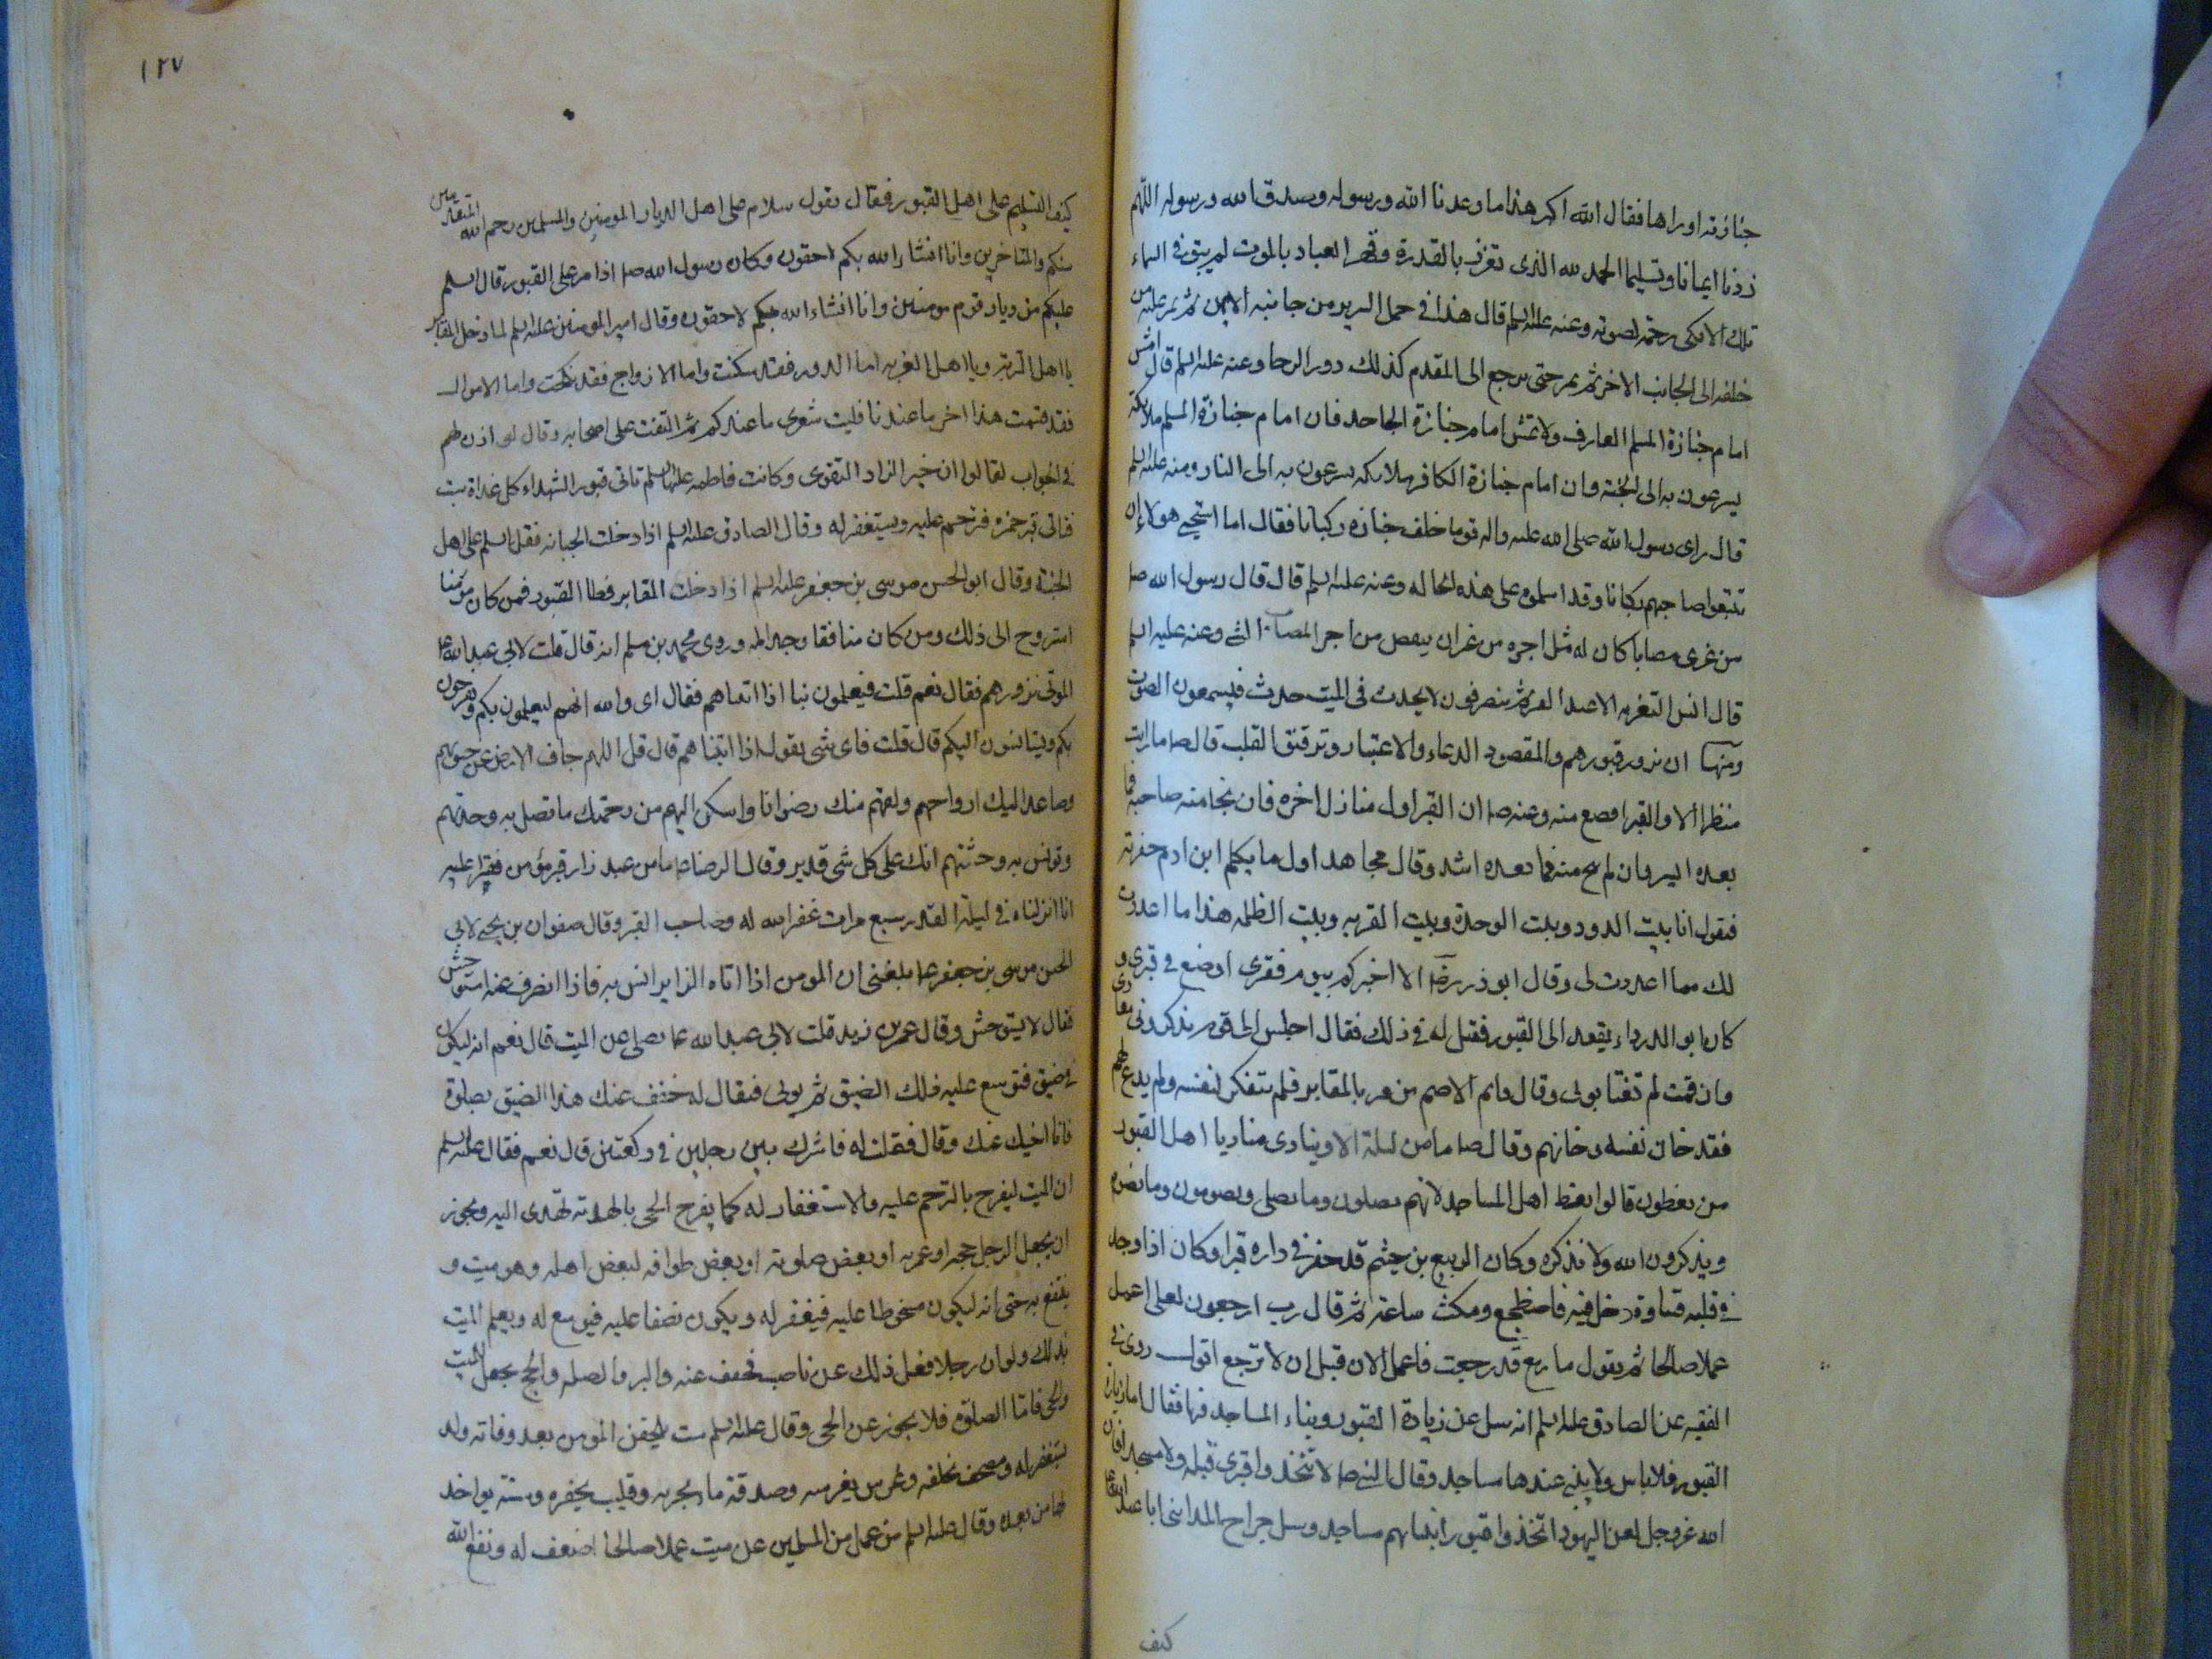 جنازته اوراها فقال الله اكبر هذا ما وعدنا الله ورسوله وصدق الله ورسوله اللهم
زدنا ايمانا وتسليما الحمد لله الذى تعزز بالقدرة وقهر العباد بالموت لم يبق فى السماء
ملك الا بكى رحمة لصوته وعنه عليه السلم قال هذا فى حمل السرير من جانبه الايمن ثم يمر عليه من
خلفه الى الجانب الاخر ثم يمر حتى يرجع الى المقدم كذلك دور الرحا وعنه عليه السلم قال امش
امام جنازة المسلم العارف ولا تمش امام جنازة الجاحد فان امام جنازة المسلم ملائكة
يسرعون به الى الجنة وان امام جنازة الكافر ملائكة يسرعون به الى النار ومنه عليه السلم
قال راى رسول الله صلى الله عليه واله قوما خلف جنازه ركبانا فقال اما استحيى هولاء ان
تتبعوا صاحبهم ركبانا وقد اسلموه على هذه الحاله وعنه عليه السلم قال قال رسول الله ص
من عزى مصابا كان له مثل اجره من غير ان ينقص من اجر المصاب الشى وعنه عليه السلم
قال ليس التعزيه الا عند القبر ثم ينصرفون لا يحدث فى الميت حدث فيسمعون الصوت
ومنها ان نزور قبورهم والمقصود الدعاء والاعتبار وترقيق القلب قال ص ما رايت
منظرا الا والقبر افضع منه وعنه ص ان القبر اول منازل اخره فان نجا منه صاحبه فما
بعده ايسر وان لم ينج منه فما بعده اشد وقال مجاهد اول ما يكلم ابن ادم حفرته
فتقول انا بيت الدود وبيت الوحدة وبيت الغربه وبيت الظلمه هذا ما اعددت
لك مما اعددت لى وقال ابو ذر رض الا اخبركم بيوم فقرى اوضع فى قبرى و
كان ابو الدرداء يقعد الى القبور فقيل له فى ذلك فقال اجلس الى قوم يذكرونى معادى
وان قمت لم تغتابونى وقال حاتم الاصم من مر بالمقابر فلم يتفكر لنفسه ولم يدع لهم
فقد خان نفسه وخانهم وقال ص ما من ليلة الا وينادى مناد يا اهل القبور
من تغبطون قالوا نغبط اهل المساجد لانهم يصلون وما نصلى ويصومون وما نصوم
ويذكرون الله ولا نذكره وكان الربيع بن خيثم قد حفر فى داره قبرا وكان اذا وجد
فى قلبه قساوة دخل فيه فاضطجع ومكث ساعة ثم قال رب ارجعون لعلى اعمل
عملا صالحا ثم يقول يا ربيع قد رجعت فاعمل الان قبل ان لا ترجع اقول روى فى
الفقيه عن الصادق عليه السلم انه سئل عن زيارة القبور وبناء المساجد فيها فقال اما زيارة
القبور فلا باس ولا يبنى عندها مساجد وقال النبى ص لا تتخذوا قبرى قبلة ولا مسجدا فان
الله عز وجل لعن اليهود اتخذوا قبور انبيائهم مساجد وسئل جراح المداينى ابا عبد الله ع
كيف
١٢٧
كيف التسليم على اهل القبور فقال تقول سلام على اهل الديار المومنين والمسلمين رحم الله المتقدمين
منكم والمتاخرين وانا انشاء الله بكم لاحقون وكان رسول الله ص اذا مر على القبور قال السلم
عليكم من ديار قوم مومنين وانا انشاء الله بكم لاحقون وقال امير المومنين عليه السلم لما دخل المقابر
يا اهل التربه ويا اهل الغربه اما الدور فقد سكنت واما الازواج فقد نكحت واما الاموال
فقد قسمت هذا اخر ما عندنا فليت شعرى ما عندكم ثم التفت على اصحابه وقال لو اذن لهم
فى الجواب لقالوا ان خير الزاد التقوى وكانت فاطمه عليها السلم تاتى قبور الشهداء كل غداة سبت
فتاتى قبر حمزه فترحم عليه ويستغفر له وقال الصادق عليه السلم اذا دخلت الجبانه فقل السلم على اهل
الجنة وقال ابو الحسن موسى بن جعفر عليه السلم اذا دخلت المقابر فطا القبور فمن كان مومنا
استروح الى ذلك ومن كان منافقا وجد المه وروى محمد بن مسلم انه قال قلت لابى عبد الله ع
الموتى نزورهم فقال نعم قلت فيعلمون بنا اذا اتيناهم فقال اى والله انهم ليعلمون بكم ويفرحون
بكم ويستانسون اليكم قال قلت فاى شى نقول اذا اتيناهم قال قل اللهم جاف الارض عن جنوبهم
وصاعد اليك ارواحهم ولقهم منك رضوانا واسكن اليهم من رحمتك ما تصل به وحدتهم
وتونس به وحشتهم انك على كل شى قدير وقال الرضا ع ما من عبد زار قبر مؤمن فقرا عليه
انا انزلناه فى ليلة القدر سبع مرات غفر الله له وصاحب القبر وقال صفوان بن يحيى لابى
الحسن موسى بن جعفر ع بلغنى ان المومن اذا اتاه الزاير انس به فاذا انصرف عنه استوحش
فقال لا يستوحش وقال عمر بن يزيد قلت لابى عبد الله ع يصلى عن الميت قال نعم انه ليكون
فى ضيق فتوسع عليه ذلك الضيق ثم يوتى فيقال له خفف عنك هذا الضيق بصلوة
فلان اخيك عنك وقال فقلت له فاشرك بين رجلين فى ركعتين قال نعم فقال عليه السلم
ان الميت ليفرح بالترحم عليه والاستغفار له كما يفرح الحى بالهدية تهدى اليه ويجوز
ان يجعل الرجل حجه او عمرته او بعض صلوته او بعض طوافه لبعض اهله وهو ميت و
ينتفع به حتى انه ليكون مسخوطا عليه فيغفر له ويكون مضيقا عليه فيوسع له ويعلم الميت
بذلك ولو ان رجلا فعل ذلك عن ناصب لخفف عنه والبر والصله والحج يجعل للميت
والحى فاما الصلوة فلا يجوز عن الحى وقال عليه السلم ست يلحقن المومن بعد وفاته ولد
يستغفر له ومصحف يخلفه وغرس يغرسه وصدقة ماء يجريه وقليب يحفره وسنة يواخذ
بها من بعده وقال عليه السلم من عمل من المسلمين عن ميت عملا صالحا اضعف له ونفع الله